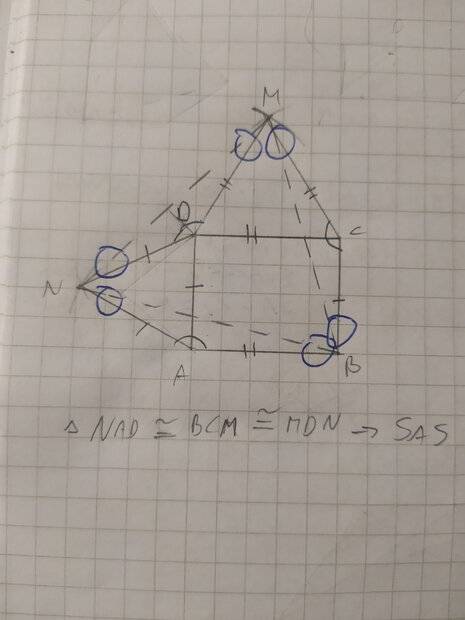 M
D
C
N
A
B
△ NAD ≅ BCM ≅ MDN → SAS